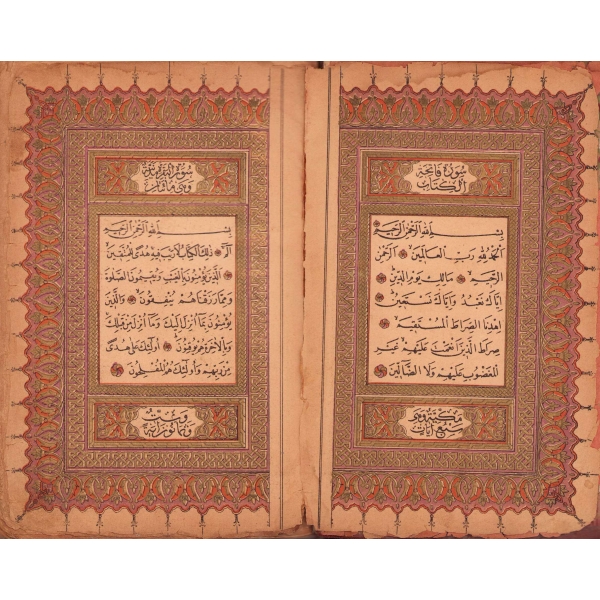 سُورَةُ فَاتِحَةِ
الْكِتَابِ
بِسْمِ اللهِ الرَّحْمٰنِ الرَّحِيمِ
اَلْحَمْدُ لِلّٰهِ رَبِّ الْعَالَمِينَ اَلرَّحْمٰنِ
الرَّحِيمِ مَالِكِ يَوْمِ الدِّينِ
اِيَّاكَ نَعْبُدُ وَاِيَّاكَ نَسْتَعِينُ
اِهْدِنَا الصِّرَاطَ الْمُسْتَقِيمَ
صِرَاطَ الَّذِينَ اَنْعَمْتَ عَلَيْهِمْ غَيْرِ
الْمَغْضُوبِ عَلَيْهِمْ وَلَا الضَّالِّينَ
مَكِّيَّةٌ وَهِيَ
سَبْعُ اٰيَاتٍ
سُورَةُ الْبَقَرَةِ مَدَنِيَّةٌ
وَهِيَ مِائَتَانِ
بِسْمِ اللهِ الرَّحْمٰنِ الرَّحِيمِ
الٓمٓ ذٰلِكَ الْكِتَابُ لَا رَيْبَ فِيهِ هُدًى لِلْمُتَّقِينَ
اَلَّذِينَ يُؤْمِنُونَ بِالْغَيْبِ وَيُقِيمُونَ الصَّلٰوةَ
وَمِمَّا رَزَقْنَاهُمْ يُنْفِقُونَ وَالَّذِينَ
يُؤْمِنُونَ بِمَا اُنْزِلَ اِلَيْكَ وَمَا اُنْزِلَ مِنْ قَبْلِكَ
وَبِالْاٰخِرَةِ هُمْ يُوقِنُونَ اُولٰئِكَ عَلٰى هُدًى
مِنْ رَبِّهِمْ وَاُولٰئِكَ هُمُ الْمُفْلِحُونَ
وَسِتٌّ
وَثَمَانُونَ اٰيَةً